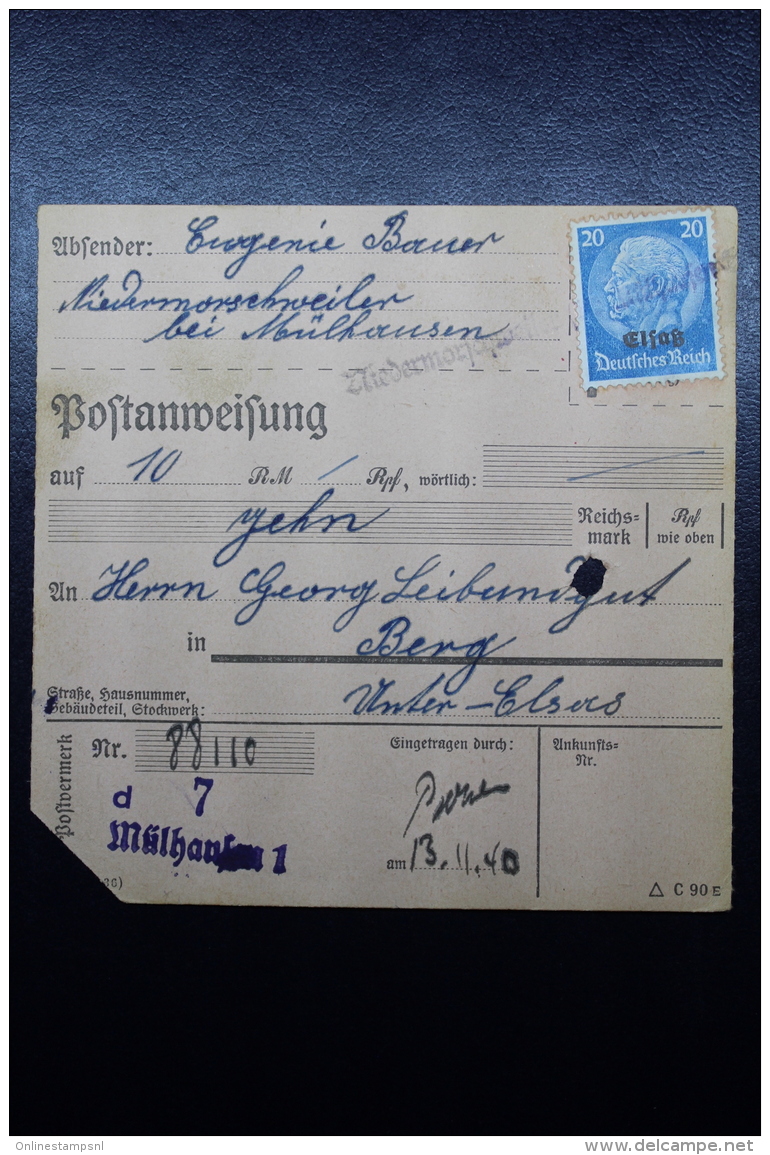 Absender: Eugenie Bauer
Niedermorschweiler
bei Mülhausen
20 20
Elsaß
Deutsches Reich
Niedermorschweil
Postanweisung
auf 10 RM / Rpf, wörtlich:
zehn Reichs- Rpf
mark wie oben
An Herrn Georg Leibundgut
in Berg
Straße, Hausnummer,
Gebäudeteil, Stockwerk: Unter-Elsas
Postvermerk
Nr. 88110 Eingetragen durch: Ankunfts-
Nr.
d 7
Mülhausen 1
am 13.11.40
36) △ C 90 E
Onlinestampsnl
delcampe.net